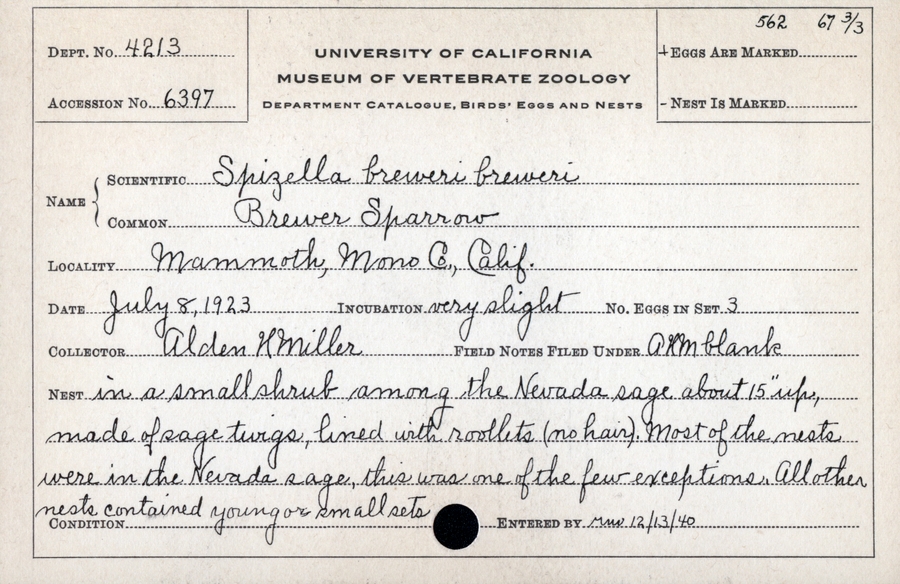 562 67 3/3
DEPT. NO. 4213
UNIVERSITY OF CALIFORNIA
+ EGGS ARE MARKED
MUSEUM OF VERTEBRATE ZOOLOGY
ACCESSION NO. 6397
DEPARTMENT CATALOGUE, BIRDS' EGGS AND NESTS
- NEST IS MARKED
NAME { SCIENTIFIC Spizella breweri breweri
COMMON Brewer Sparrow
LOCALITY Mammoth, Mono Co., Calif.
DATE July 8, 1923 INCUBATION very slight NO. EGGS IN SET 3
COLLECTOR Alden H Miller FIELD NOTES FILED UNDER AHM blank
NEST in a small shrub among the Nevada sage about 15" up,
made of sage twigs, lined with roollets (no hair). Most of the nests
were in the Nevada sage, this was one of the few exceptions. All other
nests contained young or small sets
CONDITION ENTERED BY 12/13/40